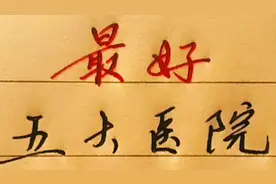 最好
五大医院